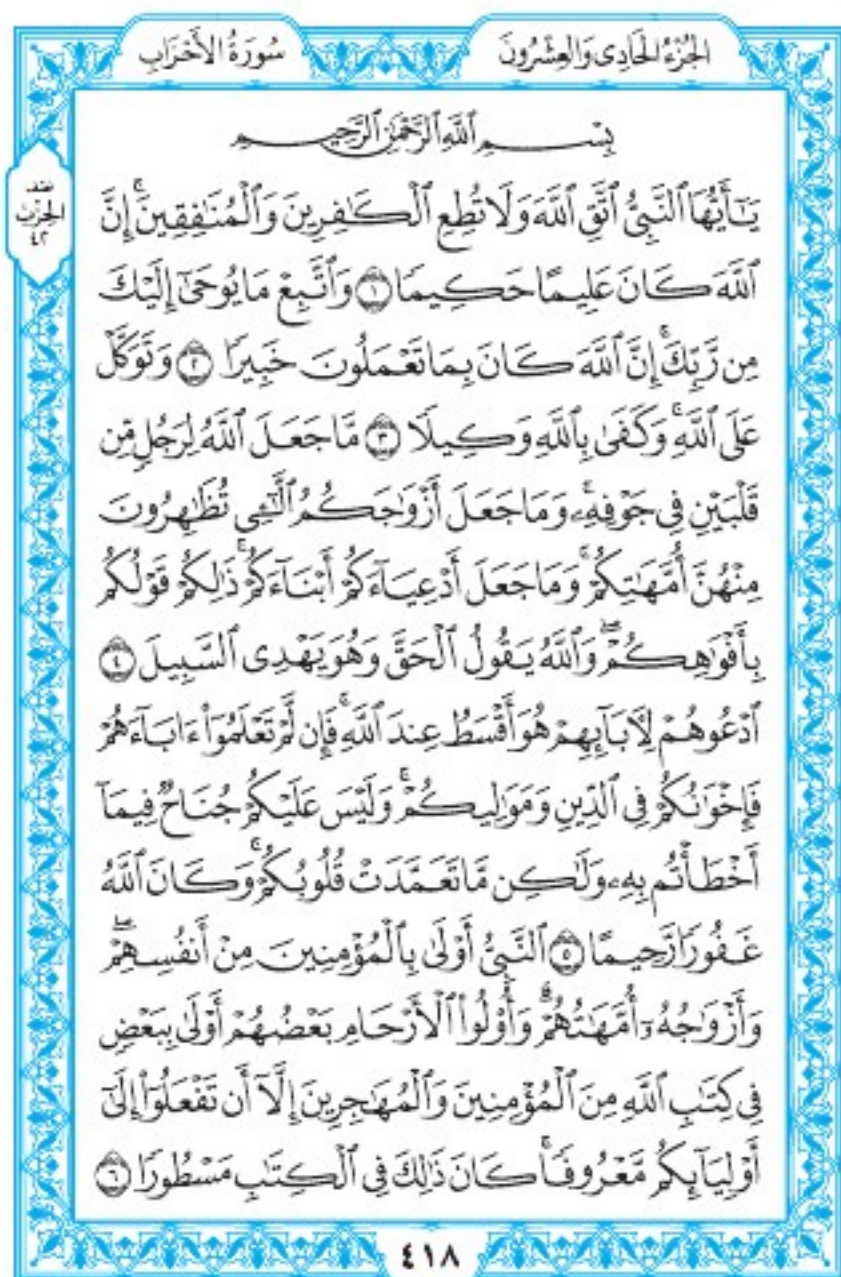 الجُزْءُ الحَادِى وَالعِشْرُونَ
سُورَةُ الأَحْزَابِ
نصف
الحزب
٤٢
بِسْمِ ٱللَّهِ ٱلرَّحْمَٰنِ ٱلرَّحِيمِ
يَٰٓأَيُّهَا ٱلنَّبِىُّ ٱتَّقِ ٱللَّهَ وَلَا تُطِعِ ٱلْكَٰفِرِينَ وَٱلْمُنَٰفِقِينَۗ إِنَّ
ٱللَّهَ كَانَ عَلِيمًا حَكِيمًا ١ وَٱتَّبِعْ مَا يُوحَىٰٓ إِلَيْكَ
مِن رَّبِّكَۚ إِنَّ ٱللَّهَ كَانَ بِمَا تَعْمَلُونَ خَبِيرًا ٢ وَتَوَكَّلْ
عَلَى ٱللَّهِۚ وَكَفَىٰ بِٱللَّهِ وَكِيلًا ٣ مَّا جَعَلَ ٱللَّهُ لِرَجُلٍ مِّن
قَلْبَيْنِ فِى جَوْفِهِۦۚ وَمَا جَعَلَ أَزْوَٰجَكُمُ ٱلَّٰٓـِٔى تُظَٰهِرُونَ
مِنْهُنَّ أُمَّهَٰتِكُمْۚ وَمَا جَعَلَ أَدْعِيَآءَكُمْ أَبْنَآءَكُمْۚ ذَٰلِكُمْ قَوْلُكُم
بِأَفْوَٰهِكُمْۖ وَٱللَّهُ يَقُولُ ٱلْحَقَّ وَهُوَ يَهْدِى ٱلسَّبِيلَ ٤
ٱدْعُوهُمْ لِءَابَآئِهِمْ هُوَ أَقْسَطُ عِندَ ٱللَّهِۚ فَإِن لَّمْ تَعْلَمُوٓا۟ ءَابَآءَهُمْ
فَإِخْوَٰنُكُمْ فِى ٱلدِّينِ وَمَوَٰلِيكُمْۚ وَلَيْسَ عَلَيْكُمْ جُنَاحٌ فِيمَآ
أَخْطَأْتُم بِهِۦ وَلَٰكِن مَّا تَعَمَّدَتْ قُلُوبُكُمْۚ وَكَانَ ٱللَّهُ
غَفُورًا رَّحِيمًا ٥ ٱلنَّبِىُّ أَوْلَىٰ بِٱلْمُؤْمِنِينَ مِنْ أَنفُسِهِمْۖ
وَأَزْوَٰجُهُۥٓ أُمَّهَٰتُهُمْۗ وَأُو۟لُوا۟ ٱلْأَرْحَامِ بَعْضُهُمْ أَوْلَىٰ بِبَعْضٍ
فِى كِتَٰبِ ٱللَّهِ مِنَ ٱلْمُؤْمِنِينَ وَٱلْمُهَٰجِرِينَ إِلَّآ أَن تَفْعَلُوٓا۟ إِلَىٰٓ
أَوْلِيَآئِكُم مَّعْرُوفًاۚ كَانَ ذَٰلِكَ فِى ٱلْكِتَٰبِ مَسْطُورًا ٦
٤١٨